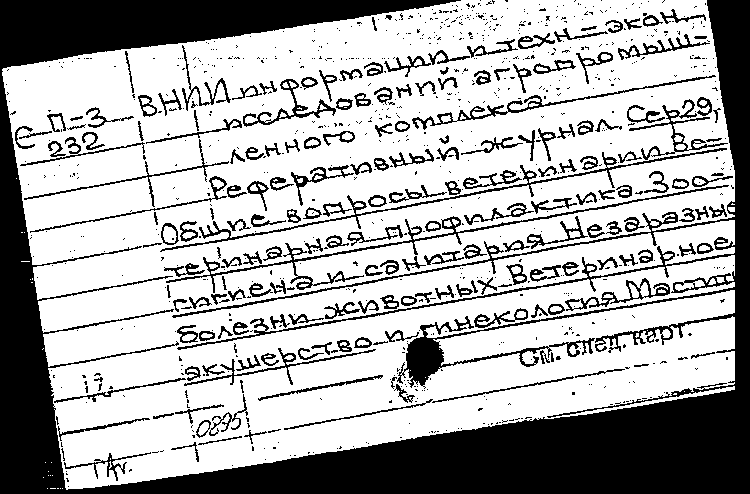 С П-3
232
ВНИИ информации и техн.-экон.
исследований агропромыш-
ленного комплекса.
Реферативный журнал. Сер29,
Общие вопросы ветеринарии Ве-
теринарная профилактика. Зоо-
гигиена и санитария Незаразные
болезни животных Ветеринарное
акушерство и гинекология Мастит
См. след. карт.
0895